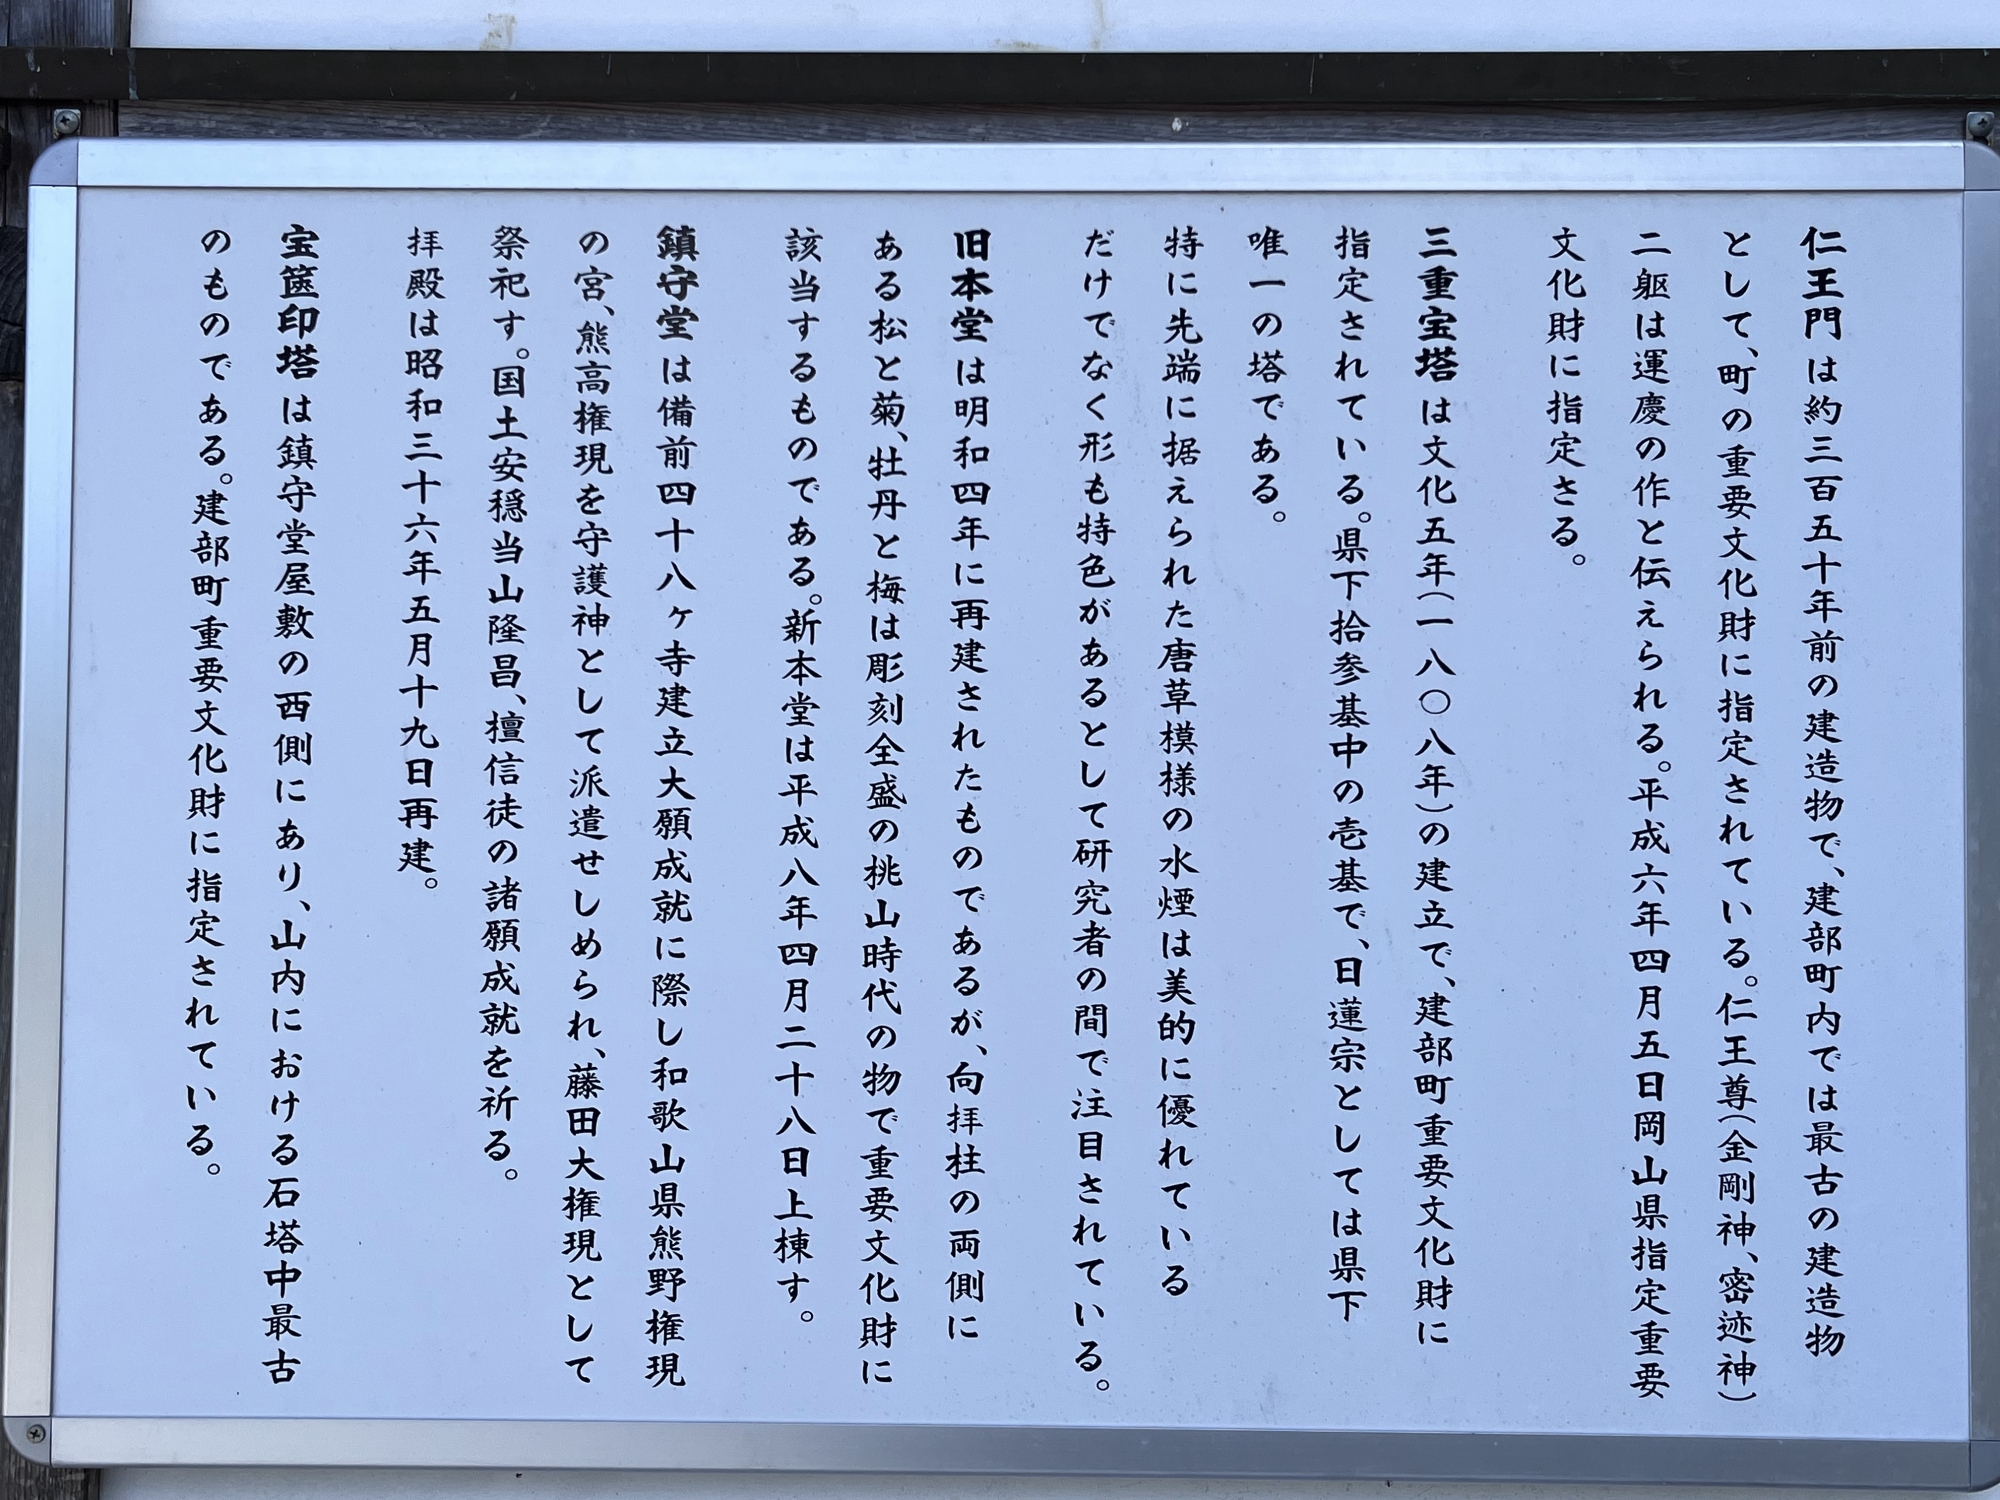 仁王門は約三百五十年前の建造物で、建部町内では最古の建造物
として、町の重要文化財に指定されている。仁王尊（金剛神、密迹神）
二躯は運慶の作と伝えられる。平成六年四月五日岡山県指定重要
文化財に指定さる。
三重宝塔は文化五年（一八〇八年）の建立で、建部町重要文化財に
指定されている。県下拾参基中の壱基で、日蓮宗としては県下
唯一の塔である。
特に先端に据えられた唐草模様の水煙は美的に優れている
だけでなく形も特色があるとして研究者の間で注目されている。
旧本堂は明和四年に再建されたものであるが、向拝柱の両側に
ある松と菊、牡丹と梅は彫刻全盛の桃山時代の物で重要文化財に
該当するものである。新本堂は平成八年四月二十八日上棟す。
鎮守堂は備前四十八ヶ寺建立大願成就に際し和歌山県熊野権現
の宮、熊高権現を守護神として派遣せしめられ、藤田大権現として
祭祀す。国土安穏当山隆昌、檀信徒の諸願成就を祈る。
拝殿は昭和三十六年五月十九日再建。
宝篋印塔は鎮守堂屋敷の西側にあり、山内における石塔中最古
のものである。建部町重要文化財に指定されている。